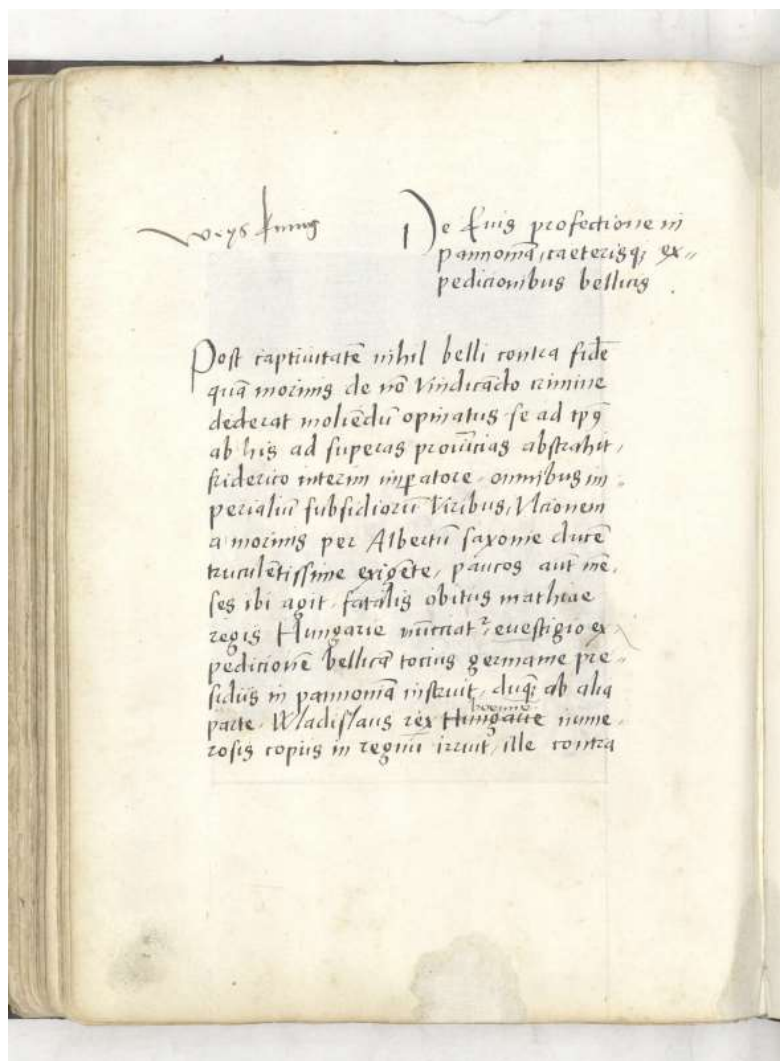 weys kunig
De Euis profectione in
pannoniā, caeterisq; ex-
pedicionibus bellicis.
Post captiuitatē nihil belli contra fidē
quā morinis de nō vindicādo crimine
dederat moliēdū opinatus se ad
ab his ad superas prouīcias abstrahit,
friderico interim imꝑatore, omnibus im-
perialiū subsidiorū viribus, Vlcionem
a morinis per Albertū saxonie ducē
truculētissime exigēte, paucos aūt mē-
ses ibi agit, fatalis obitus mathiae
regis Hungarie nūcciat², euestigio ex-
pedicionē bellicā tocius germanie pre-
sidiis in pannoniā instruit, duq; ab alia
boemie
parte, Wladislaus rex Hungarie nume-
rosis copiis in regnū irruit, ille contra